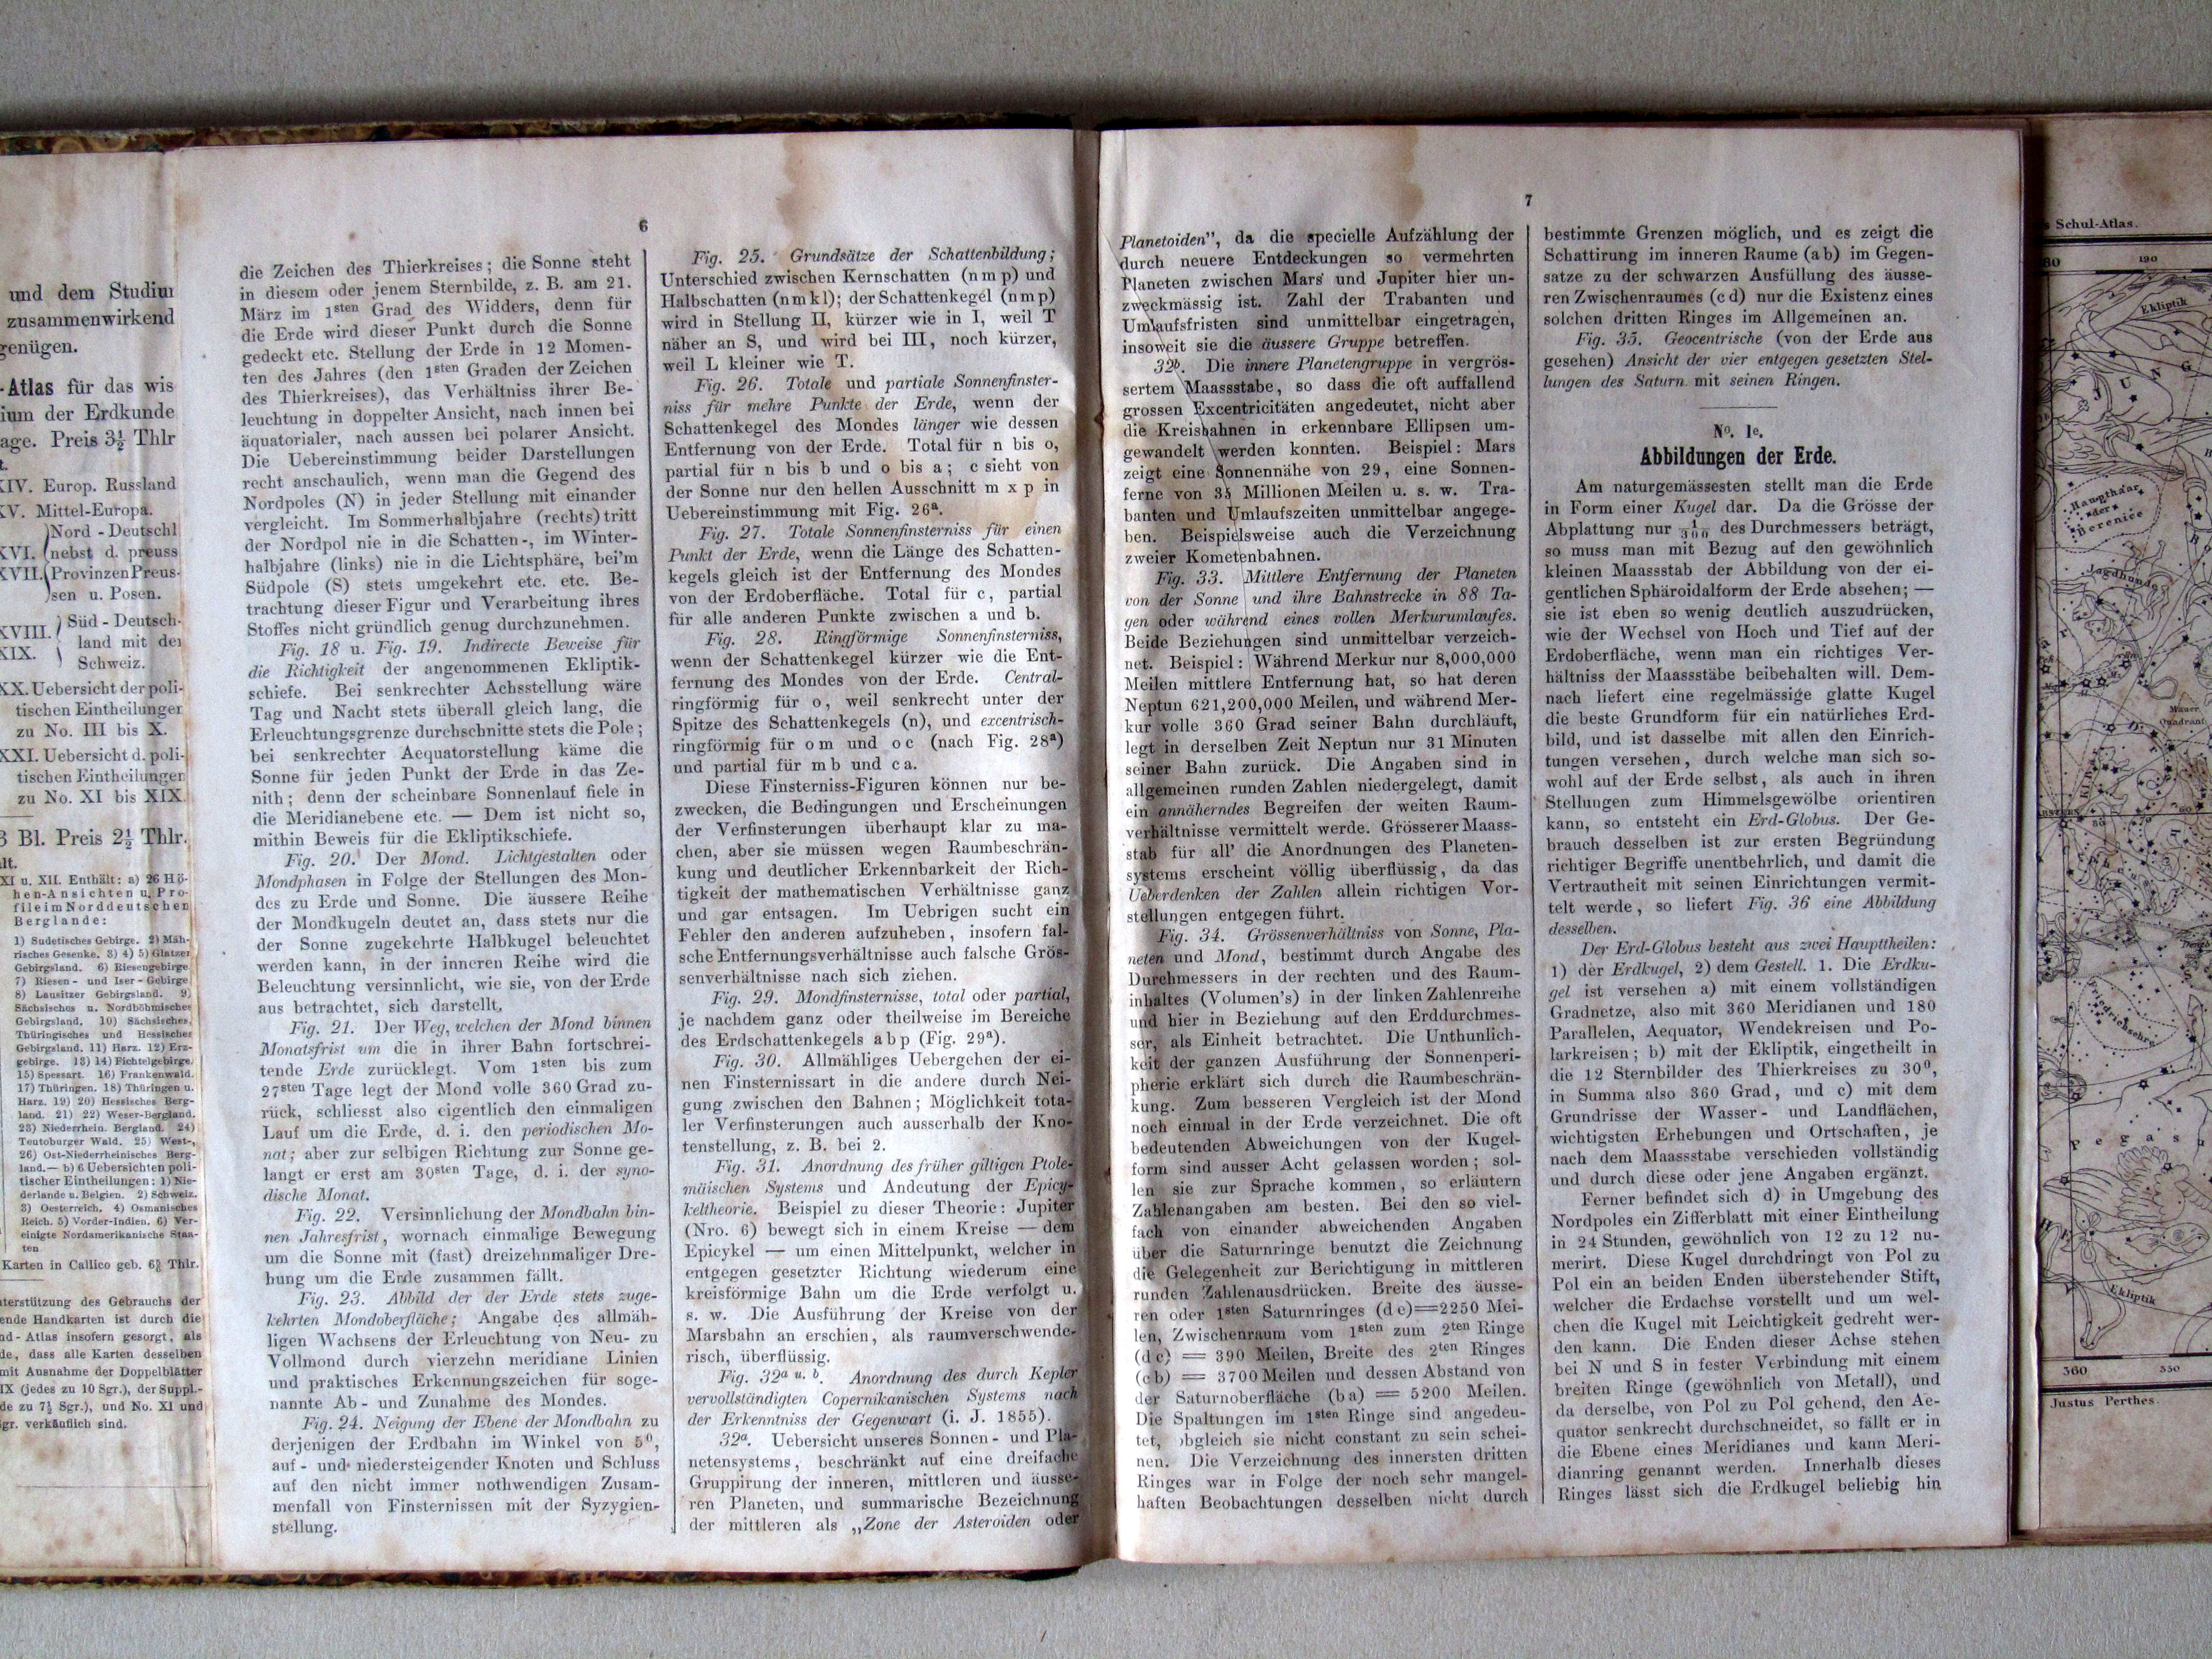 und dem Studiu
zusammenwirkend
genügen.
-Atlas für das wis
ium der Erdkunde
age. Preis 3½ Thlr
t.
XIV. Europ. Russland
XV. Mittel-Europa.
Nord - Deutschl
XVI. nebst d. preuss
XVII. Provinzen Preus-
sen u. Posen.
XVIII. Süd - Deutsch-
XIX. land mit der
Schweiz.
XX. Uebersicht der poli-
tischen Eintheilungen
zu No. III bis X.
XXI. Uebersicht d. poli-
tischen Eintheilungen
zu No. XI bis XIX.
3 Bl. Preis 2½ Thlr.
lt.
XI u. XII. Enthält: a) 26 Hö-
hen-Ansichten u. Pro-
file im Norddeutschen
Berglande:
1) Sudetisches Gebirge. 2) Mäh-
risches Gesenke. 3) 4) 5) Glatzer
Gebirgsland. 6) Riesengebirge
7) Riesen- und Iser-Gebirge
8) Lausitzer Gebirgsland. 9)
Sächsisches u. Nordböhmisches
Gebirgsland. 10) Sächsisches,
Thüringisches und Hessisches
Gebirgsland. 11) Harz. 12) Erz-
gebirge. 13) 14) Fichtelgebirge.
15) Spessart. 16) Frankenwald.
17) Thüringen. 18) Thüringen u.
Harz. 19) 20) Hessisches Berg-
land. 21) 22) Weser-Bergland.
23) Niederrhein. Bergland. 24)
Teutoburger Wald. 25) West-,
26) Ost-Niederrheinisches Berg-
land.— b) 6 Uebersichten poli-
tischer Eintheilungen: 1) Nie-
derlande u. Belgien. 2) Schweiz.
3) Oesterreich. 4) Osmanisches
Reich. 5) Vorder-Indien. 6) Ver-
einigte Nordamerikanische Staa-
ten
Karten in Callico geb. Thlr.
nterstützung des Gebrauchs der
ende Handkarten ist durch die
nd - Atlas insofern gesorgt, als
de, dass alle Karten desselben
mit Ausnahme der Doppelblätter
IX (jedes zu 10 Sgr.), der Suppl.-
de zu 7½ Sgr.), und No. XI und
gr. verkäuflich sind.
6
die Zeichen des Thierkreises; die Sonne steht
in diesem oder jenem Sternbilde, z. B. am 21.
März im 1sten Grad des Widders, denn für
die Erde wird dieser Punkt durch die Sonne
gedeckt etc. Stellung der Erde in 12 Momen-
ten des Jahres (den 1sten Graden der Zeichen
des Thierkreises), das Verhältniss ihrer Be-
leuchtung in doppelter Ansicht, nach innen bei
äquatorialer, nach aussen bei polarer Ansicht.
Die Uebereinstimmung beider Darstellungen
recht anschaulich, wenn man die Gegend des
Nordpoles (N) in jeder Stellung mit einander
vergleicht. Im Sommerhalbjahre (rechts) tritt
der Nordpol nie in die Schatten-, im Winter-
halbjahre (links) nie in die Lichtsphäre, bei'm
Südpole (S) stets umgekehrt etc. etc. Be-
trachtung dieser Figur und Verarbeitung ihres
Stoffes nicht gründlich genug durchzunehmen.
Fig. 18 u. Fig. 19. Indirecte Beweise für
die Richtigkeit der angenommenen Ekliptik-
schiefe. Bei senkrechter Achsstellung wäre
Tag und Nacht stets überall gleich lang, die
Erleuchtungsgrenze durchschnitte stets die Pole;
bei senkrechter Aequatorstellung käme die
Sonne für jeden Punkt der Erde in das Ze-
nith; denn der scheinbare Sonnenlauf fiele in
die Meridianebene etc. — Dem ist nicht so,
mithin Beweis für die Ekliptikschiefe.
Fig. 20. Der Mond. Lichtgestalten oder
Mondphasen in Folge der Stellungen des Mon-
des zu Erde und Sonne. Die äussere Reihe
der Mondkugeln deutet an, dass stets nur die
der Sonne zugekehrte Halbkugel beleuchtet
werden kann, in der inneren Reihe wird die
Beleuchtung versinnlicht, wie sie, von der Erde
aus betrachtet, sich darstellt.
Fig. 21. Der Weg, welchen der Mond binnen
Monatsfrist um die in ihrer Bahn fortschrei-
tende Erde zurücklegt. Vom 1sten bis zum
27sten Tage legt der Mond volle 360 Grad zu-
rück, schliesst also eigentlich den einmaligen
Lauf um die Erde, d. i. den periodischen Mo-
nat; aber zur selbigen Richtung zur Sonne ge-
langt er erst am 30sten Tage, d. i. der syno-
dische Monat.
Fig. 22. Versinnlichung der Mondbahn bin-
nen Jahresfrist, wornach einmalige Bewegung
um die Sonne mit (fast) dreizehnmaliger Dre-
hung um die Erde zusammen fällt.
Fig. 23. Abbild der der Erde stets zuge-
kehrten Mondoberfläche; Angabe des allmäh-
ligen Wachsens der Erleuchtung von Neu- zu
Vollmond durch vierzehn meridiane Linien
und praktisches Erkennungszeichen für soge-
nannte Ab- und Zunahme des Mondes.
Fig. 24. Neigung der Ebene der Mondbahn zu
derjenigen der Erdbahn im Winkel von 5⁰,
auf- und niedersteigender Knoten und Schluss
auf den nicht immer nothwendigen Zusam-
menfall von Finsternissen mit der Syzygien-
stellung.
Fig. 25. Grundsätze der Schattenbildung;
Unterschied zwischen Kernschatten (n m p) und
Halbschatten (n m k l); der Schattenkegel (n m p)
wird in Stellung II, kürzer wie in I, weil T
näher an S, und wird bei III, noch kürzer,
weil L kleiner wie T.
Fig. 26. Totale und partiale Sonnenfinster-
niss für mehre Punkte der Erde, wenn der
Schattenkegel des Mondes länger wie dessen
Entfernung von der Erde. Total für n bis o,
partial für n bis b und o bis a; c sieht von
der Sonne nur den hellen Ausschnitt m x p in
Uebereinstimmung mit Fig. 26a.
Fig. 27. Totale Sonnenfinsterniss für einen
Punkt der Erde, wenn die Länge des Schatten-
kegels gleich ist der Entfernung des Mondes
von der Erdoberfläche. Total für c, partial
für alle anderen Punkte zwischen a und b.
Fig. 28. Ringförmige Sonnenfinsterniss,
wenn der Schattenkegel kürzer wie die Ent-
fernung des Mondes von der Erde. Central-
ringförmig für o, weil senkrecht unter der
Spitze des Schattenkegels (n), und excentrisch-
ringförmig für o m und o c (nach Fig. 28a)
und partial für m b und c a.
Diese Finsterniss-Figuren können nur be-
zwecken, die Bedingungen und Erscheinungen
der Verfinsterungen überhaupt klar zu ma-
chen, aber sie müssen wegen Raumbeschrän-
kung und deutlicher Erkennbarkeit der Rich-
tigkeit der mathematischen Verhältnisse ganz
und gar entsagen. Im Uebrigen sucht ein
Fehler den anderen aufzuheben, insofern fal-
sche Entfernungsverhältnisse auch falsche Grös-
senverhältnisse nach sich ziehen.
Fig. 29. Mondfinsternisse, total oder partial,
je nachdem ganz oder theilweise im Bereiche
des Erdschattenkegels a b p (Fig. 29a).
Fig. 30. Allmähliges Uebergehen der ei-
nen Finsternissart in die andere durch Nei-
gung zwischen den Bahnen; Möglichkeit tota-
ler Verfinsterungen auch ausserhalb der Kno-
tenstellung, z. B. bei 2.
Fig. 31. Anordnung des früher giltigen Ptole-
mäischen Systems und Andeutung der Epicy-
keltheorie. Beispiel zu dieser Theorie: Jupiter
(Nro. 6) bewegt sich in einem Kreise — dem
Epicykel — um einen Mittelpunkt, welcher in
entgegen gesetzter Richtung wiederum eine
kreisförmige Bahn um die Erde verfolgt u.
s. w. Die Ausführung der Kreise von der
Marsbahn an erschien, als raumverschwende-
risch, überflüssig.
Fig. 32a u. b. Anordnung des durch Kepler
vervollständigten Copernikanischen Systems nach
der Erkenntniss der Gegenwart (i. J. 1855).
32a. Uebersicht unseres Sonnen- und Pla-
netensystems, beschränkt auf eine dreifache
Gruppirung der inneren, mittleren und äusse-
ren Planeten, und summarische Bezeichnung
der mittleren als „Zone der Asteroiden oder
7
Planetoiden”, da die specielle Aufzählung der
durch neuere Entdeckungen so vermehrten
Planeten zwischen Mars und Jupiter hier un-
zweckmässig ist. Zahl der Trabanten und
Umlaufsfristen sind unmittelbar eingetragen,
insoweit sie die äussere Gruppe betreffen.
32b. Die innere Planetengruppe in vergrös-
sertem Maassstabe, so dass die oft auffallend
grossen Excentricitäten angedeutet, nicht aber
die Kreisbahnen in erkennbare Ellipsen um-
gewandelt werden konnten. Beispiel: Mars
zeigt eine Sonnennähe von 29, eine Sonnen-
ferne von 35 Millionen Meilen u. s. w. Tra-
banten und Umlaufszeiten unmittelbar angege-
ben. Beispielsweise auch die Verzeichnung
zweier Kometenbahnen.
Fig. 33. Mittlere Entfernung der Planeten
von der Sonne und ihre Bahnstrecke in 88 Ta-
gen oder während eines vollen Merkurumlaufes.
Beide Beziehungen sind unmittelbar verzeich-
net. Beispiel: Während Merkur nur 8,000,000
Meilen mittlere Entfernung hat, so hat deren
Neptun 621,200,000 Meilen, und während Mer-
kur volle 360 Grad seiner Bahn durchläuft,
legt in derselben Zeit Neptun nur 31 Minuten
seiner Bahn zurück. Die Angaben sind in
allgemeinen runden Zahlen niedergelegt, damit
ein annäherndes Begreifen der weiten Raum-
verhältnisse vermittelt werde. Grösserer Maass-
stab für all' die Anordnungen des Planeten-
systems erscheint völlig überflüssig, da das
Ueberdenken der Zahlen allein richtigen Vor-
stellungen entgegen führt.
Fig. 34. Grössenverhältniss von Sonne, Pla-
neten und Mond, bestimmt durch Angabe des
Durchmessers in der rechten und des Raum-
inhaltes (Volumen's) in der linken Zahlenreihe
und hier in Beziehung auf den Erddurchmes-
ser, als Einheit betrachtet. Die Unthunlich-
keit der ganzen Ausführung der Sonnenperi-
pherie erklärt sich durch die Raumbeschrän-
kung. Zum besseren Vergleich ist der Mond
noch einmal in der Erde verzeichnet. Die oft
bedeutenden Abweichungen von der Kugel-
form sind ausser Acht gelassen worden; sol-
len sie zur Sprache kommen, so erläutern
Zahlenangaben am besten. Bei den so viel-
fach von einander abweichenden Angaben
über die Saturnringe benutzt die Zeichnung
die Gelegenheit zur Berichtigung in mittleren
runden Zahlenausdrücken. Breite des äusse-
ren oder 1sten Saturnringes (d e)=2250 Mei-
len, Zwischenraum vom 1sten zum 2ten Ringe
(d c) = 390 Meilen, Breite des 2ten Ringes
(c b) = 3700 Meilen und dessen Abstand von
der Saturnoberfläche (b a) = 5200 Meilen.
Die Spaltungen im 1sten Ringe sind angedeu-
tet, obgleich sie nicht constant zu sein schei-
nen. Die Verzeichnung des innersten dritten
Ringes war in Folge der noch sehr mangel-
haften Beobachtungen desselben nicht durch
bestimmte Grenzen möglich, und es zeigt die
Schattirung im inneren Raume (a b) im Gegen-
satze zu der schwarzen Ausfüllung des äusse-
ren Zwischenraumes (c d) nur die Existenz eines
solchen dritten Ringes im Allgemeinen an.
Fig. 35. Geocentrische (von der Erde aus
gesehen) Ansicht der vier entgegen gesetzten Stel-
lungen des Saturn mit seinen Ringen.
No. 1e.
Abbildungen der Erde.
Am naturgemässesten stellt man die Erde
in Form einer Kugel dar. Da die Grösse der
Abplattung nur 1/300 des Durchmessers beträgt,
so muss man mit Bezug auf den gewöhnlich
kleinen Maassstab der Abbildung von der ei-
gentlichen Sphäroidalform der Erde absehen; —
sie ist eben so wenig deutlich auszudrücken,
wie der Wechsel von Hoch und Tief auf der
Erdoberfläche, wenn man ein richtiges Ver-
hältniss der Maassstäbe beibehalten will. Dem-
nach liefert eine regelmässige glatte Kugel
die beste Grundform für ein natürliches Erd-
bild, und ist dasselbe mit allen den Einrich-
tungen versehen, durch welche man sich so-
wohl auf der Erde selbst, als auch in ihren
Stellungen zum Himmelsgewölbe orientiren
kann, so entsteht ein Erd-Globus. Der Ge-
brauch desselben ist zur ersten Begründung
richtiger Begriffe unentbehrlich, und damit die
Vertrautheit mit seinen Einrichtungen vermit-
telt werde, so liefert Fig. 36 eine Abbildung
desselben.
Der Erd-Globus besteht aus zwei Haupttheilen:
1) der Erdkugel, 2) dem Gestell. 1. Die Erdku-
gel ist versehen a) mit einem vollständigen
Gradnetze, also mit 360 Meridianen und 180
Parallelen, Aequator, Wendekreisen und Po-
larkreisen; b) mit der Ekliptik, eingetheilt in
die 12 Sternbilder des Thierkreises zu 30⁰,
in Summa also 360 Grad, und c) mit dem
Grundrisse der Wasser- und Landflächen,
wichtigsten Erhebungen und Ortschaften, je
nach dem Maassstabe verschieden vollständig
und durch diese oder jene Angaben ergänzt.
Ferner befindet sich d) in Umgebung des
Nordpoles ein Zifferblatt mit einer Eintheilung
in 24 Stunden, gewöhnlich von 12 zu 12 nu-
merirt. Diese Kugel durchdringt von Pol zu
Pol ein an beiden Enden überstehender Stift,
welcher die Erdachse vorstellt und um wel-
chen die Kugel mit Leichtigkeit gedreht wer-
den kann. Die Enden dieser Achse stehen
bei N und S in fester Verbindung mit einem
breiten Ringe (gewöhnlich von Metall), und
da derselbe, von Pol zu Pol gehend, den Ae-
quator senkrecht durchschneidet, so fällt er in
die Ebene eines Meridianes und kann Meri-
dianring genannt werden. Innerhalb dieses
Ringes lässt sich die Erdkugel beliebig hin
s Schul-Atlas.
80
190
Ekliptik
JUNG
Haupthaar
der
Berenice
Jagdhunde
Mauer
Quadrant
Friedrichsehre
Pegasu
Ekliptik
360
350
Justus Perthes.